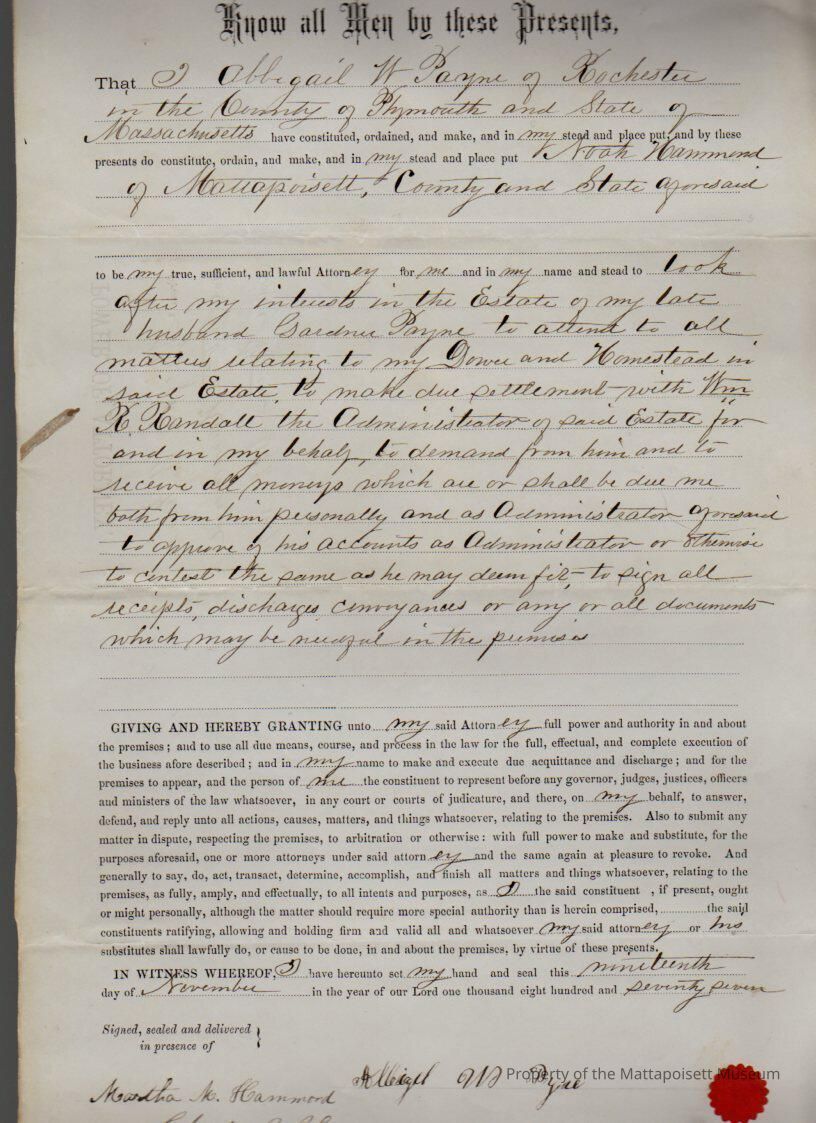 Know all Men by these Presents,
That I Abbigail W Payne of Rochester
in the County of Plymouth and State of
Massachusetts have constituted, ordained, and make, and in my stead and place put, and by these
presents do constitute, ordain, and make, and in my stead and place put Noah Hammond
of Mattapoisett, County and State aforesaid
to be my true, sufficient, and lawful Attorney for me and in my name and stead to look
after my interests in the Estate of my late
husband Gardner Payne to attend to all
matters relating to my Dower and Homestead in
said Estate, to make due settlement with Wm
R. Randall the Administrator of said Estate for
and in my behalf, to demand from him and to
receive all moneys which are or shall be due me
both from him personally and as Administrator aforesaid
to approve of his accounts as Administrator or otherwise
to contest the same as he may deem fit, to sign all
receipts, discharges, conveyances or any or all documents
which may be needful in the premises
GIVING AND HEREBY GRANTING unto my said Attorney full power and authority in and about
the premises; and to use all due means, course, and process in the law for the full, effectual, and complete execution of
the business afore described; and in my name to make and execute due acquittance and discharge; and for the
premises to appear, and the person of me the constituent to represent before any governor, judges, justices, officers
and ministers of the law whatsoever, in any court or courts of judicature, and there, on my behalf, to answer,
defend, and reply unto all actions, causes, matters, and things whatsoever, relating to the premises. Also to submit any
matter in dispute, respecting the premises, to arbitration or otherwise: with full power to make and substitute, for the
purposes aforesaid, one or more attorneys under said attorney and the same again at pleasure to revoke. And
generally to say, do, act, transact, determine, accomplish, and finish all matters and things whatsoever, relating to the
premises, as fully, amply, and effectually, to all intents and purposes, as I the said constituent , if present, ought
or might personally, although the matter should require more special authority than is herein comprised, the said
constituents ratifying, allowing and holding firm and valid all and whatsoever my said attorney or his
substitutes shall lawfully do, or cause to be done, in and about the premises, by virtue of these presents.
IN WITNESS WHEREOF, I have hereunto set my hand and seal this nineteenth
day of November in the year of our Lord one thousand eight hundred and seventy seven
Signed, sealed and delivered
in presence of
Abbigil W Pyne
Property of the Mattapoisett Museum
Martha M. Hammond